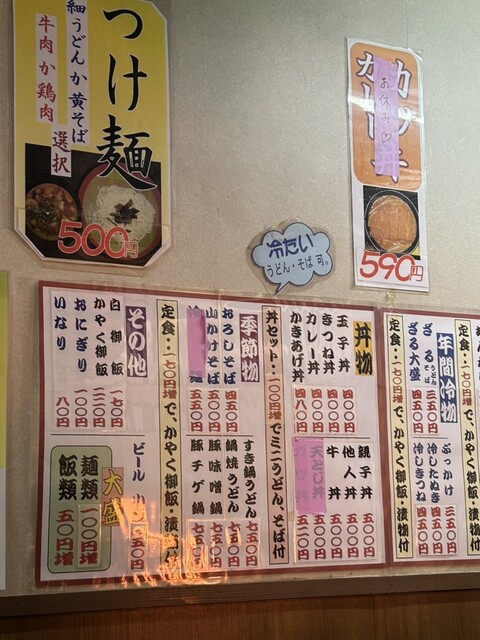 つけ麺
細うどんか黄そば
牛肉か鶏肉
選択
500円
カツ
カレー丼
お休み♡
590円
冷たい
うどん・そば 可。
年間冷物
ざる
うどん
そば
三五〇円
ざる大盛
四五〇円
ぶっかけ
三五〇円
冷したぬき
四五〇円
冷しきつね
四五〇円
定食：一七〇円増で、かやく御飯・漬物付
丼物
玉子丼
四〇〇円
きつね丼
四〇〇円
カレー丼
四八〇円
かきあげ丼
四八〇円
親子丼
五〇〇円
他人丼
五〇〇円
牛丼
五〇〇円
天とじ丼
丼セット：一〇〇円増でミニうどん、そば付
季節物
おろしそば
四五〇円
山かけそば
五五〇円
すき鍋うどん
七五〇円
鍋焼うどん
七五〇円
豚味噌鍋
七五〇円
豚チゲ鍋
七五〇円
定食：一七〇円増で、かやく御飯・漬物付
その他
白御飯
一七〇円
かやく御飯
二二〇円
おにぎり
一一〇円
いなり
八〇円
ビール
大盛
麺類
一〇〇円増
飯類
五〇円増